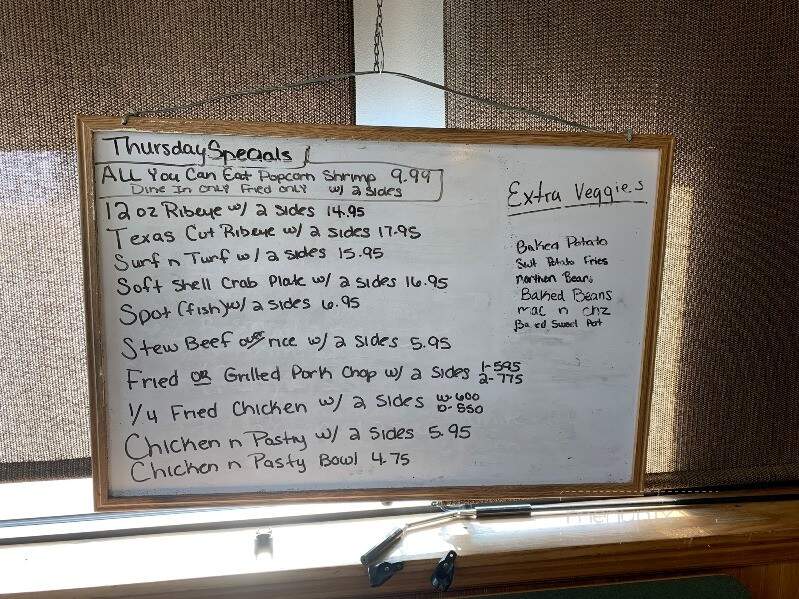 Thursday Specials
ALL You Can Eat Popcorn Shrimp 9.99
Dine In Only Fried Only w/ 2 sides
12 oz Ribeye w/ 2 sides 14.95
Texas Cut Ribeye w/ 2 sides 17.95
Surf n Turf w/ 2 sides 15.95
Soft Shell Crab Plate w/ 2 sides 16.95
Spot (fish) w/ 2 sides 6.95
Stew Beef over rice w/ 2 sides 5.95
Fried OR Grilled Pork Chop w/ 2 sides 1-595
2-775
1/4 Fried Chicken w/ 2 sides W-600
D-550
Chicken n Pastry w/ 2 sides 5.95
Chicken n Pastry Bowl 4.75
Extra Veggies
Baked Potato
Swt Potato Fries
northen Beans
Baked Beans
mac n chz
Ba ed Sweet Pot